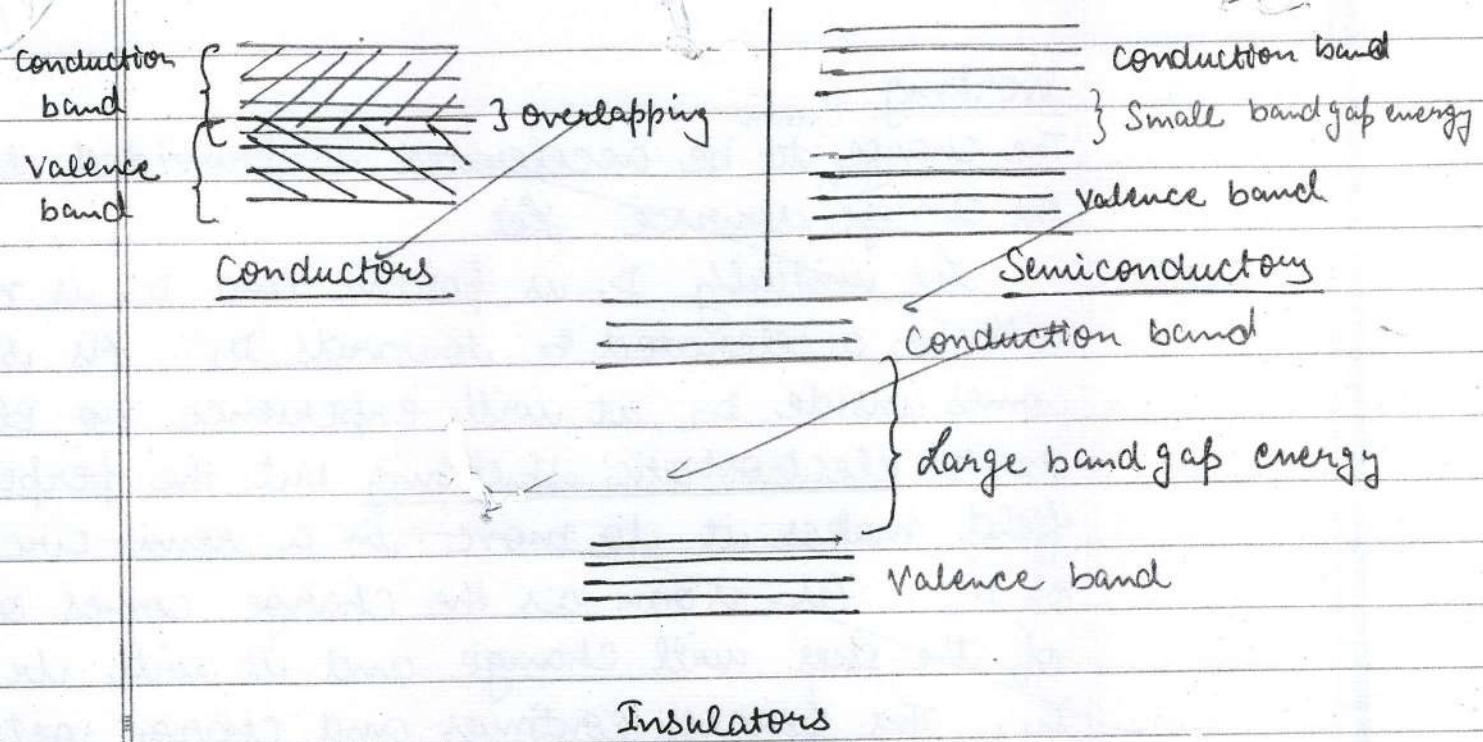 Conduction
band
Valence
band
} overlapping
Conductors
Conduction band
} Small band gap energy
Valence band
Semiconductors
Conduction band
} Large band gap energy
Valence band
Insulators